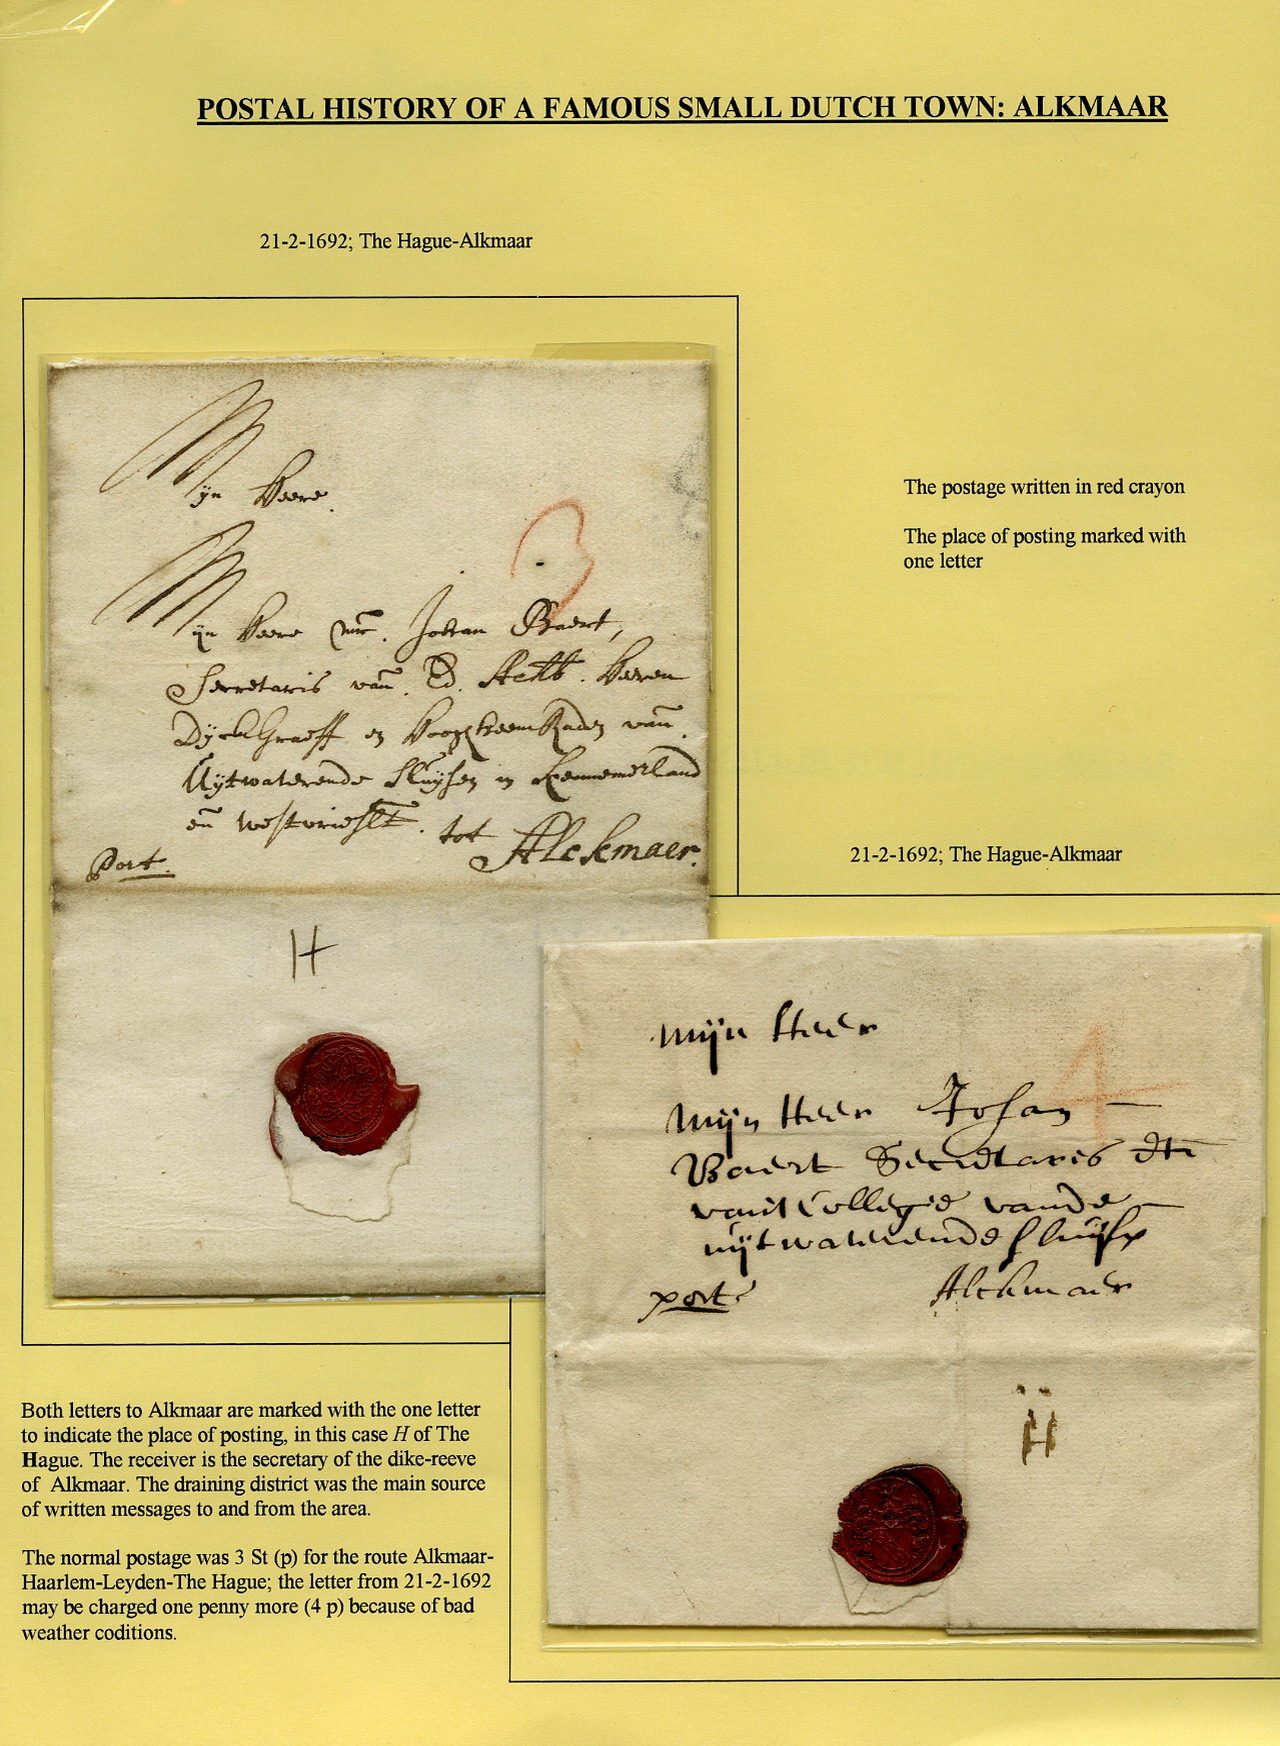 POSTAL HISTORY OF A FAMOUS SMALL DUTCH TOWN: ALKMAAR
21-2-1692; The Hague-Alkmaar
Mijn Heere
3
Mijn Heere Mr. Johan Baert,
Secretaris van Ed. Achtb. Heeren
DyckGraeff en Hooghheemraden van
Uijtwaterende Sluijsen in Kennemerland
en westvrieslt. tot Alckmaer.
Port.
H
The postage written in red crayon
The place of posting marked with
one letter
21-2-1692; The Hague-Alkmaar
Mijn Heer
4
Mijn Heer Johan
Baert Secretaris
van't Collegie vande
uijtwaterende sluijsen
port Alckmaer
H
Both letters to Alkmaar are marked with the one letter
to indicate the place of posting, in this case H of The
Hague. The receiver is the secretary of the dike-reeve
of Alkmaar. The draining district was the main source
of written messages to and from the area.
The normal postage was 3 St (p) for the route Alkmaar-
Haarlem-Leyden-The Hague; the letter from 21-2-1692
may be charged one penny more (4 p) because of bad
weather coditions.